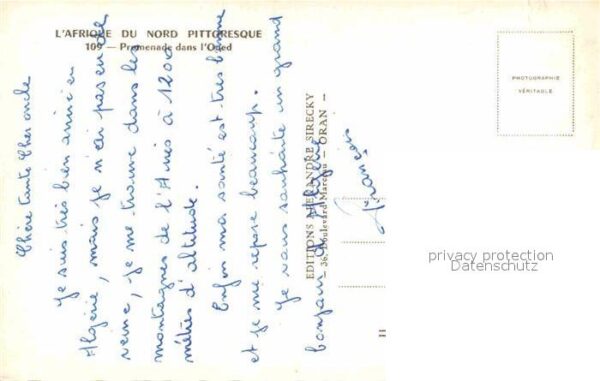 L'AFRIQUE DU NORD PITTORESQUE
109 — Promenade dans l'Oued
Chère tante Cher oncle
Je suis très bien arrivé en
Algérie, mais je n'ai pas eu de
veine, je me trouve dans les
montagnes de l'Aurès à 1200
mètres d'altitude.
Enfin ma santé est très bonne
et je me repose beaucoup.
Je vous souhaite un grand
bonjour d'Algérie
François
EDITIONS ALEXANDRE SIRECKY
— 36, Boulevard Marceau — ORAN —
PHOTOGRAPHIE
VÉRITABLE
privacy protection
Datenschutz